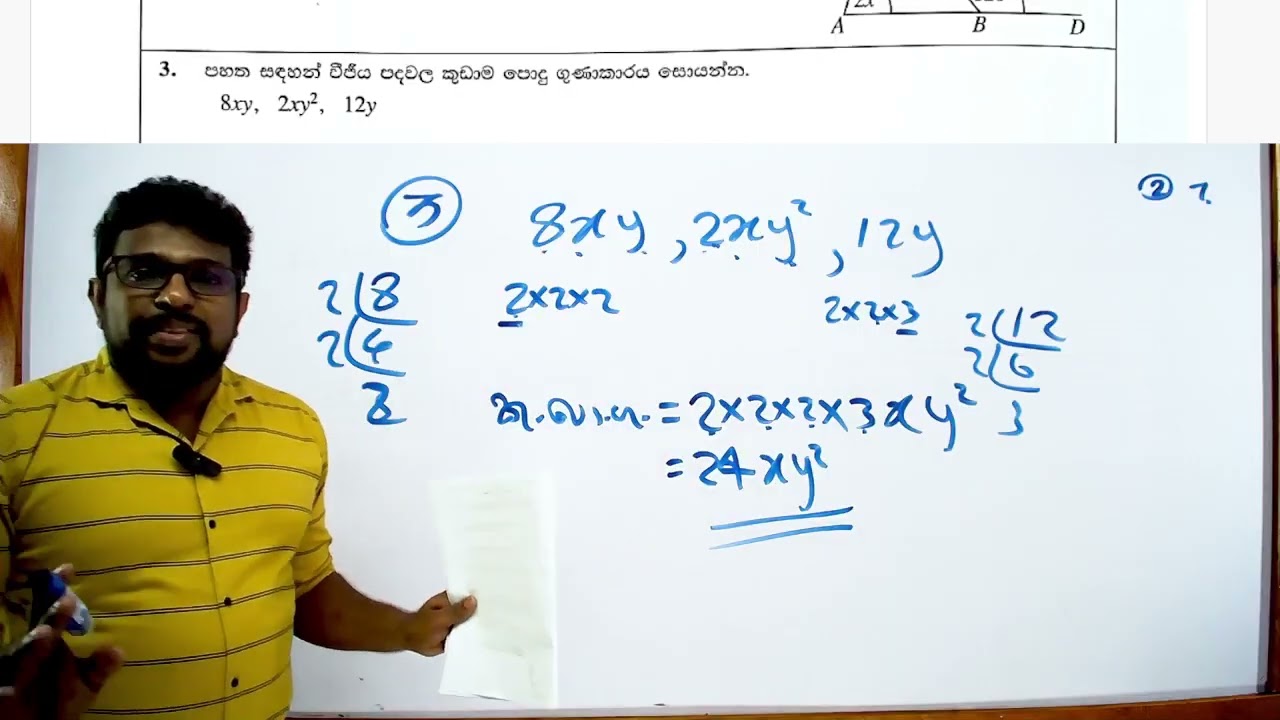 2x
A B D
3. පහත සඳහන් වීජීය පදවල කුඩාම පොදු ගුණාකාරය සොයන්න.
8xy, 2xy², 12y
② 7.
③ 8xy, 2xy², 12y
2 8 2×2×2 2×2×3 2 12
2 4 2 6
2 3
කු.පො.ගු. = 2×2×2×3xy²
= 24xy²